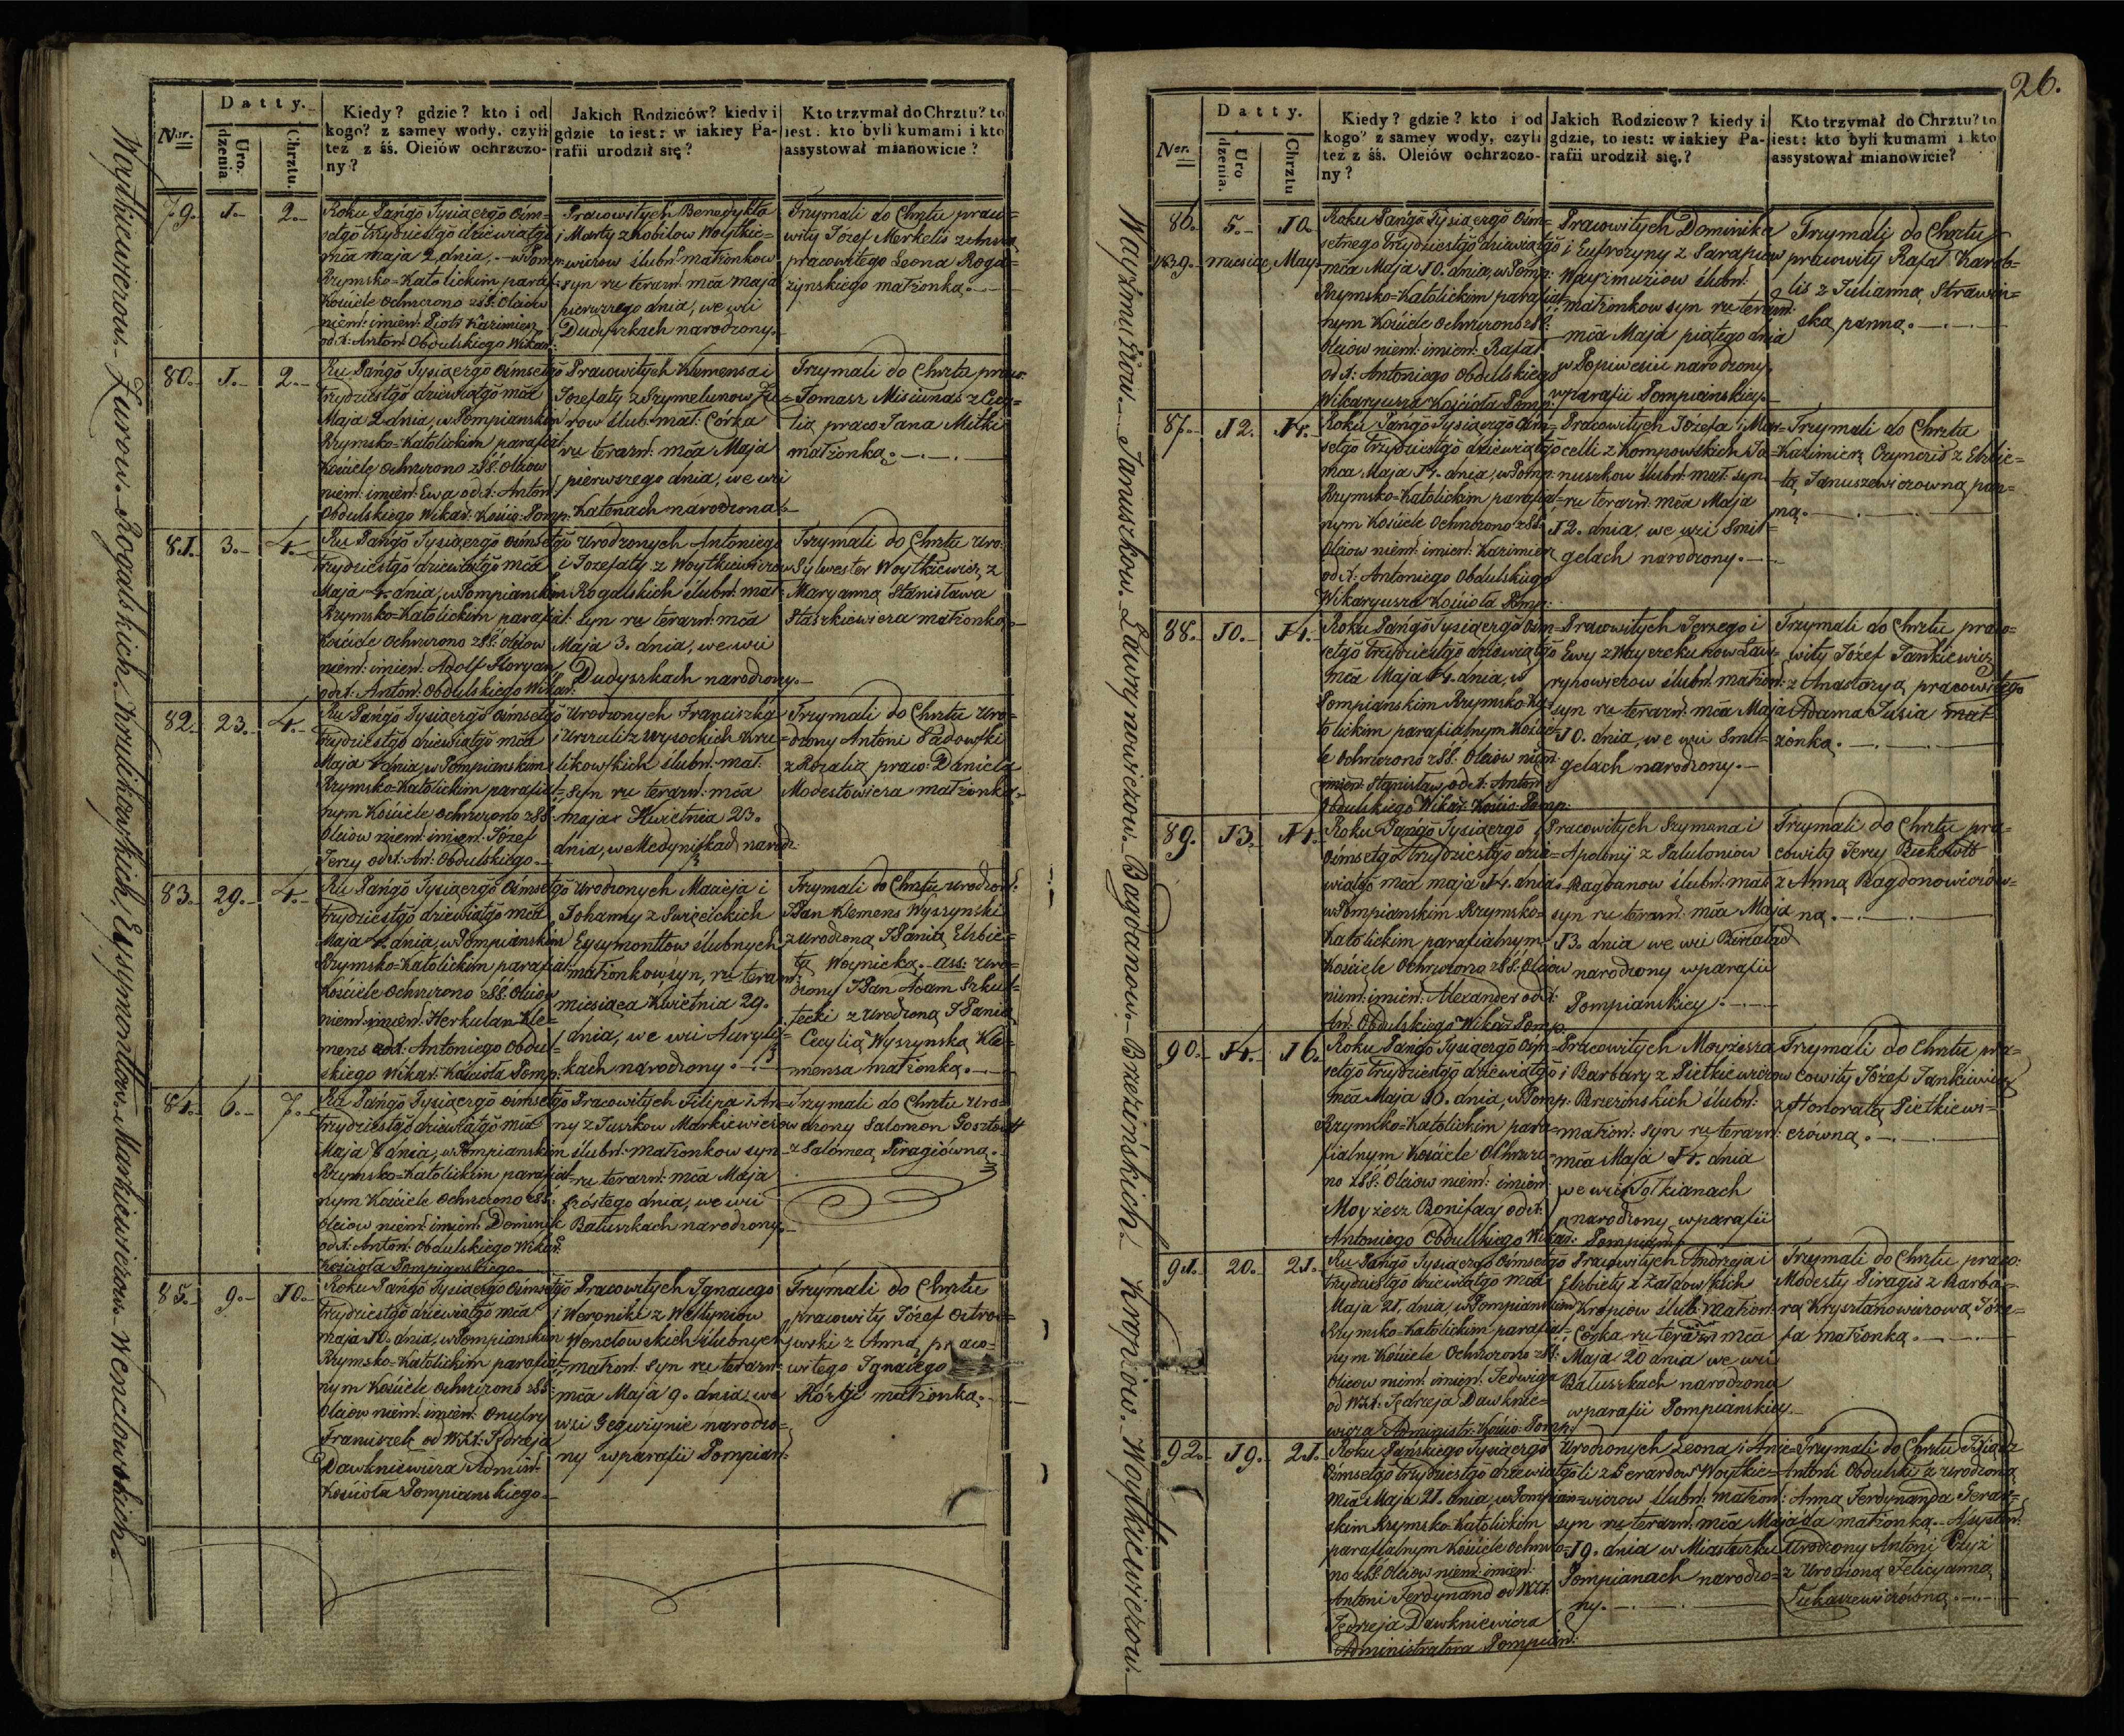 Datty.
Ner.
Uro-
dzenia.
Chrztu.
Kiedy? gdzie? kto i od
kogo? z samey wody, czyli
też z śś. Oleiów ochrzczo-
ny?
Jakich Rodziców? kiedy i
gdzie to iest: w iakiey Pa-
rafii urodził się?
Kto trzymał do Chrztu? to
iest: kto byli kumami i kto
assystował mianowicie?
79. 1. 2.
Roku Pańgo Tysiącgo Ośm-
setgo trzydziestgo dziewiątgo
mca maja 2 dnia, w Pomp:
Rzymsko-Katolickim paraf:
Kościele Ochrzczono z SS: Oleiów
niem: imien: Piotr Kazimierz
od X: Anton: Obdulskiego Wikar:
Pracowitych Benedykta
i Marty z Nobilow Woytkie-
wiczow ślubn: małżonkow
syn ru terazn: mca maja
pierwszego dnia, we wsi
Dudyszkach narodzony.
Trzymali do Chrztu praco-
wity Józef Merkelis z Anną
pracowitego Leona Roga-
żynskiego małżonką.
80. 1. 2.
Ru Pańgo Tysiącgo Ośmsetgo
trzydziestgo dziewiątgo mca
Maja 2 dnia, w Pompianskim
Rzymsko-Katolickim parafial:
Kościele Ochrzczono z SS: Oleiow
niem: imien: Ewa od X: Anton:
Obdulskiego Wikar: Kościo: Pomp:
Pracowitych Klemensa i
Jozefaty z Szymelunow Żu-
row ślub: mał: Córka
ru terazn: mca Maja
pierwszego dnia, we wsi
Katenach narodzona.
Trzymali do Chrztu praco:
Tomasz Misiunas z Cecy-
lią praco: Jana Mitki
małżonką.
81. 3. 4.
Ru Pańgo Tysiącgo Ośmsetgo
trzydziestgo dziewiątgo mca
Maja 4. dnia, w Pompianskim
Rzymsko-Katolickim parafial:
Kościele Ochrzczono z SS: Oleiow
niem: imien: Adolf Floryan
od X: Anton: Obdulskiego Wikar:
Urodzonych Antoniego
i Jozefaty z Woytkiewiczow
Rogalskich ślubn: mał:
syn ru terazn: mca
Maja 3. dnia, we wsi
Dudyszkach narodzony.
Trzymali do Chrztu Uro:
Sylwester Woytkiewicz z
Maryanną Stanisława
Staszkiewicza małżonką.
82. 23. 4.
Ru Pańgo Tysiącgo Ośmsetgo
trzydziestgo dziewiątgo mca
Maja 4 dnia, w Pompianskim
Rzymsko-Katolickim parafial-
nym Kościele Ochrzczono z SS:
Oleiow niem: imien: Józef
Jerzy od X: An: Obdulskiego.
Urodzonych Franciszka
i Urszuli z Wysockich Kru-
likowskich ślubn: mał:
syn ru terazn: mca
maja Kwietnia 23.
dnia, we Medyniszkach narodz:
Trzymali do Chrztu Uro-
dzony Antoni Sadowski
z Rozalią praco: Daniela
Modestowicza małżonką.
83. 29. 4.
Ru Pańgo Tysiącgo Ośmsetgo
trzydziestgo dziewiątgo mca
Maja 4. dnia, w Pompianskim
Rzymsko-Katolickim parafial:
Kościele Ochrzczono z SS: Oleiow
niem: imien: Herkulan Kle-
mens od X: Antoniego Obdul-
skiego Wikar: Kościoła Pomp:
Urodzonych Macieja i
Johanny z Swięcickich
Eysymonttow ślubnych
małżonkow syn, ru terazn:
miesiąca Kwietnia 29.
dnia, we wsi Auryliż-
kach narodzony.
Trzymali do Chrztu urodzon:
JPan Klemens Wyszynski
z urodzoną JPanią Elzbie-
tą Woynicką. Ass: Uro-
dzony JPan Adam Szkul-
tecki z urodzoną JPanią
Cecylią Wyszynską Kle-
mensa małżonką.
84. 6. 7.
Ru Pańgo Tysiącgo Ośmsetgo
trzydziestgo dziewiątgo mca
Maja 7 dnia, w Pompianskim
Rzymsko-Katolickim parafial-
nym Kościele Ochrzczono z SS:
Oleiow niem: imien: Dominik
od X: Anton: Obdulskiego Wikar:
Kościoła Pompianskiego.
Pracowitych Filipa i An-
ny z Juszkow Markiewiczow
ślubn: małżonkow syn
ru terazn: mca Maja
szóstego dnia, we wsi
Batuszkach narodzony.
Trzymali do Chrztu Uro-
dzony Salomon Gosztowtt
z Salomeą Piragiówną.
85. 9. 10.
Roku Pańgo Tysiącgo Ośmsetgo
trzydziestgo dziewiątgo mca
maja 10. dnia, w Pompianskim
Rzymsko-Katolickim parafial-
nym Kościele Ochrzczono z SS:
Oleiow niem: imien: Onufry
Franciszek od WJX: Jędrzeja
Dawkniewicza Admin:
Kościoła Pompianskiego.
Pracowitych Ignacego
i Weroniki z Weltyniow
Wencłowskich ślubnych
małżon: syn ru terazn:
mca Maja 9. dnia, we
wsi Geguzynie narodzo-
ny w parafii Pompian:
Trzymali do Chrztu
pracowity Józef Ostrow-
ski z Anną praco-
witego Ignacego
małżonką.
Woytkiewiczow. Żurow. Rogalskich. Krulikowskich. Eysymonttow. Markiewiczow. Wencłowskich.
26.
Datty.
Ner.
Uro
dzenia.
Chrztu
Kiedy? gdzie? kto i od
kogo? z samey wody, czyli
też z śś. Oleiów ochrzczo-
ny?
Jakich Rodziców? kiedy i
gdzie, to iest: w iakiey Pa-
rafii urodził się.?
Kto trzymał do Chrztu? to
iest: kto byli kumami i kto
assystował mianowicie?
86. 5. 10.
1839. miesiac May.
Roku Pańgo Tysiącgo Ośm-
setnego trzydziestgo dziewiątgo
mca Maja 10. dnia, w Pomp:
Rzymsko-Katolickim parafial-
nym Kościele Ochrzczono z SS:
Oleiow niem: imien: Rafał
od X: Antoniego Obdulskiego
Wikaryusza Kościoła Pomp:
Pracowitych Dominika
i Eufrozyny z Sarapiow
Wayzimuziow ślubn:
małżonkow syn ru terazn:
mca Maja piątego dnia
w Popiwesiu narodzony
w parafii Pompianskiey.
Trzymali do Chrztu
pracowity Rafał Karob-
lis z Julianną Strawin-
ską panną.
87. 12. 14.
Roku Pańgo Tysiącgo Ośm-
setgo trzydziestgo dziewiątgo
mca Maja 14. dnia, w Pomp:
Rzymsko-Katolickim parafial-
nym Kościele Ochrzczono z SS:
Oleiow niem: imien: Kazimierz
od X: Antoniego Obdulskiego
Wikaryusza Kościoła Pomp:
Pracowitych Józefa i Mar-
celli z Kompowskich Ja-
nuszkow ślubn: mał: syn
ru terazn: mca Maja
12. dnia, we wsi Smil-
gelach narodzony.
Trzymali do Chrztu
Kazimierz z Elzbie-
tą Januszewiczowną pan-
ną.
88. 10. 14.
Roku Pańgo Tysiącgo Ośm-
setgo trzydziestgo dziewiątgo
mca Maja 14. dnia, w
Pompianskim Rzymsko-Ka-
tolickim parafialnym Kościo-
le Ochrzczono z SS: Oleiow niem:
imien: Stanisław, od X: Anton:
Obdulskiego Wikar: Kościo: Pomp:
Pracowitych Jerzego i
Ewy z Wayczekunow Ław-
rynowiczow ślubn: małżon:
syn ru terazn: mca Maja
10. dnia, we wsi Smil-
gelach narodzony.
Trzymali do Chrztu praco-
wity Józef Jankiewicz
z Anastazyą pracowitego
Adama Jusia mał-
żonką.
89. 13. 14.
Roku Pańgo Tysiącgo
Ośmsetgo trzydziestgo dzie-
wiątgo mca maja 14. dnia
w Pompianskim Rzymsko-
Katolickim parafialnym
Kościele Ochrzczono z SS: Oleiow
niem: imien: Alexander od X:
An: Obdulskiego Wikar: Pomp:
Pracowitych Szymona i
Apolonij z Paluloniow
Bagdanow ślubn: mał:
syn ru terazn: mca Maja
13. dnia we wsi
narodzony w parafii
Pompianskiey.
Trzymali do Chrztu pra-
cowity Jerzy
z Anną Bagdonowiczów-
ną.
90. 14. 16.
Roku Pańgo Tysiącgo Ośm-
setgo trzydziestgo dziewiątgo
mca Maja 10. dnia, w Pomp:
Rzymsko-Katolickim para-
fialnym Kościele Ochrzczo-
no z SS: Oleiow niem: imien:
Moyżesz Bonifacy od X:
Antoniego Obdulskiego Wikar:
Pracowitych Moyżesza
i Barbary z Pietkiewiczow
Brzezinskich ślubn:
małżon: syn ru terazn:
mca Maja 14. dnia
we wsi Tołkianach
narodzony w parafii
Pompian:
Trzymali do Chrztu pra-
cowity Józef Jankiewicz
z Honoratą Pietkiewi-
czówną.
91. 20. 21.
Ru Pańgo Tysiącgo Ośmsetgo
trzydziestgo dziewiątgo mca
Maja 21. dnia, w Pompianskim
Rzymsko-Katolickim parafial-
nym Kościele Ochrzczono z SS:
Oleiow niem: imien: Jedwiga
od WJX: Jędrzeja Dawknie-
wicza Administr: Kościo: Pomp:
Pracowitych Andrzeja i
Elzbiety z Żałdowskich
Kropiow ślub: małżon:
Córka ru terazn: mca
Maja 20 dnia we wsi
Batuszkach narodzona
w parafii Pompianskiey.
Trzymali do Chrztu praco:
Modesty Piragis z Barba-
rą Krysztanowiczową Józe-
fa małżonką.
92. 19. 21.
Roku Pańskiego Tysiącgo
Ośmsetgo trzydziestgo dziewiątgo
mca Maja 21. dnia, w Pompian-
skim Rzymsko-Katolickim
parafialnym Kościele Ochrzczo-
no z SS: Oleiow niem: imien:
Antoni Ferdynand od WJX:
Jędrzeja Dawkniewicza
Administratora Pompian:
Urodzonych Leona i Anie-
li z Gerardow Woytkie-
wiczow ślubn: małżon:
syn ru terazn: mca Maja
19. dnia w Miasteczku
Pompianach narodzo-
ny.
Trzymali do Chrztu Xiądz
Antoni Obdulski z urodzoną
Anną Ferdynanda Gerar-
da małżonką. Assystow:
Urodzony Antoni Czyż
z Urodzoną Felicyanną
Łukaszewiczówną.
Wayzimuziow. Januszkow. Ławrynowiczow. Bagdanow. Brzezińskich. Kropiow. Woytkiewiczow.